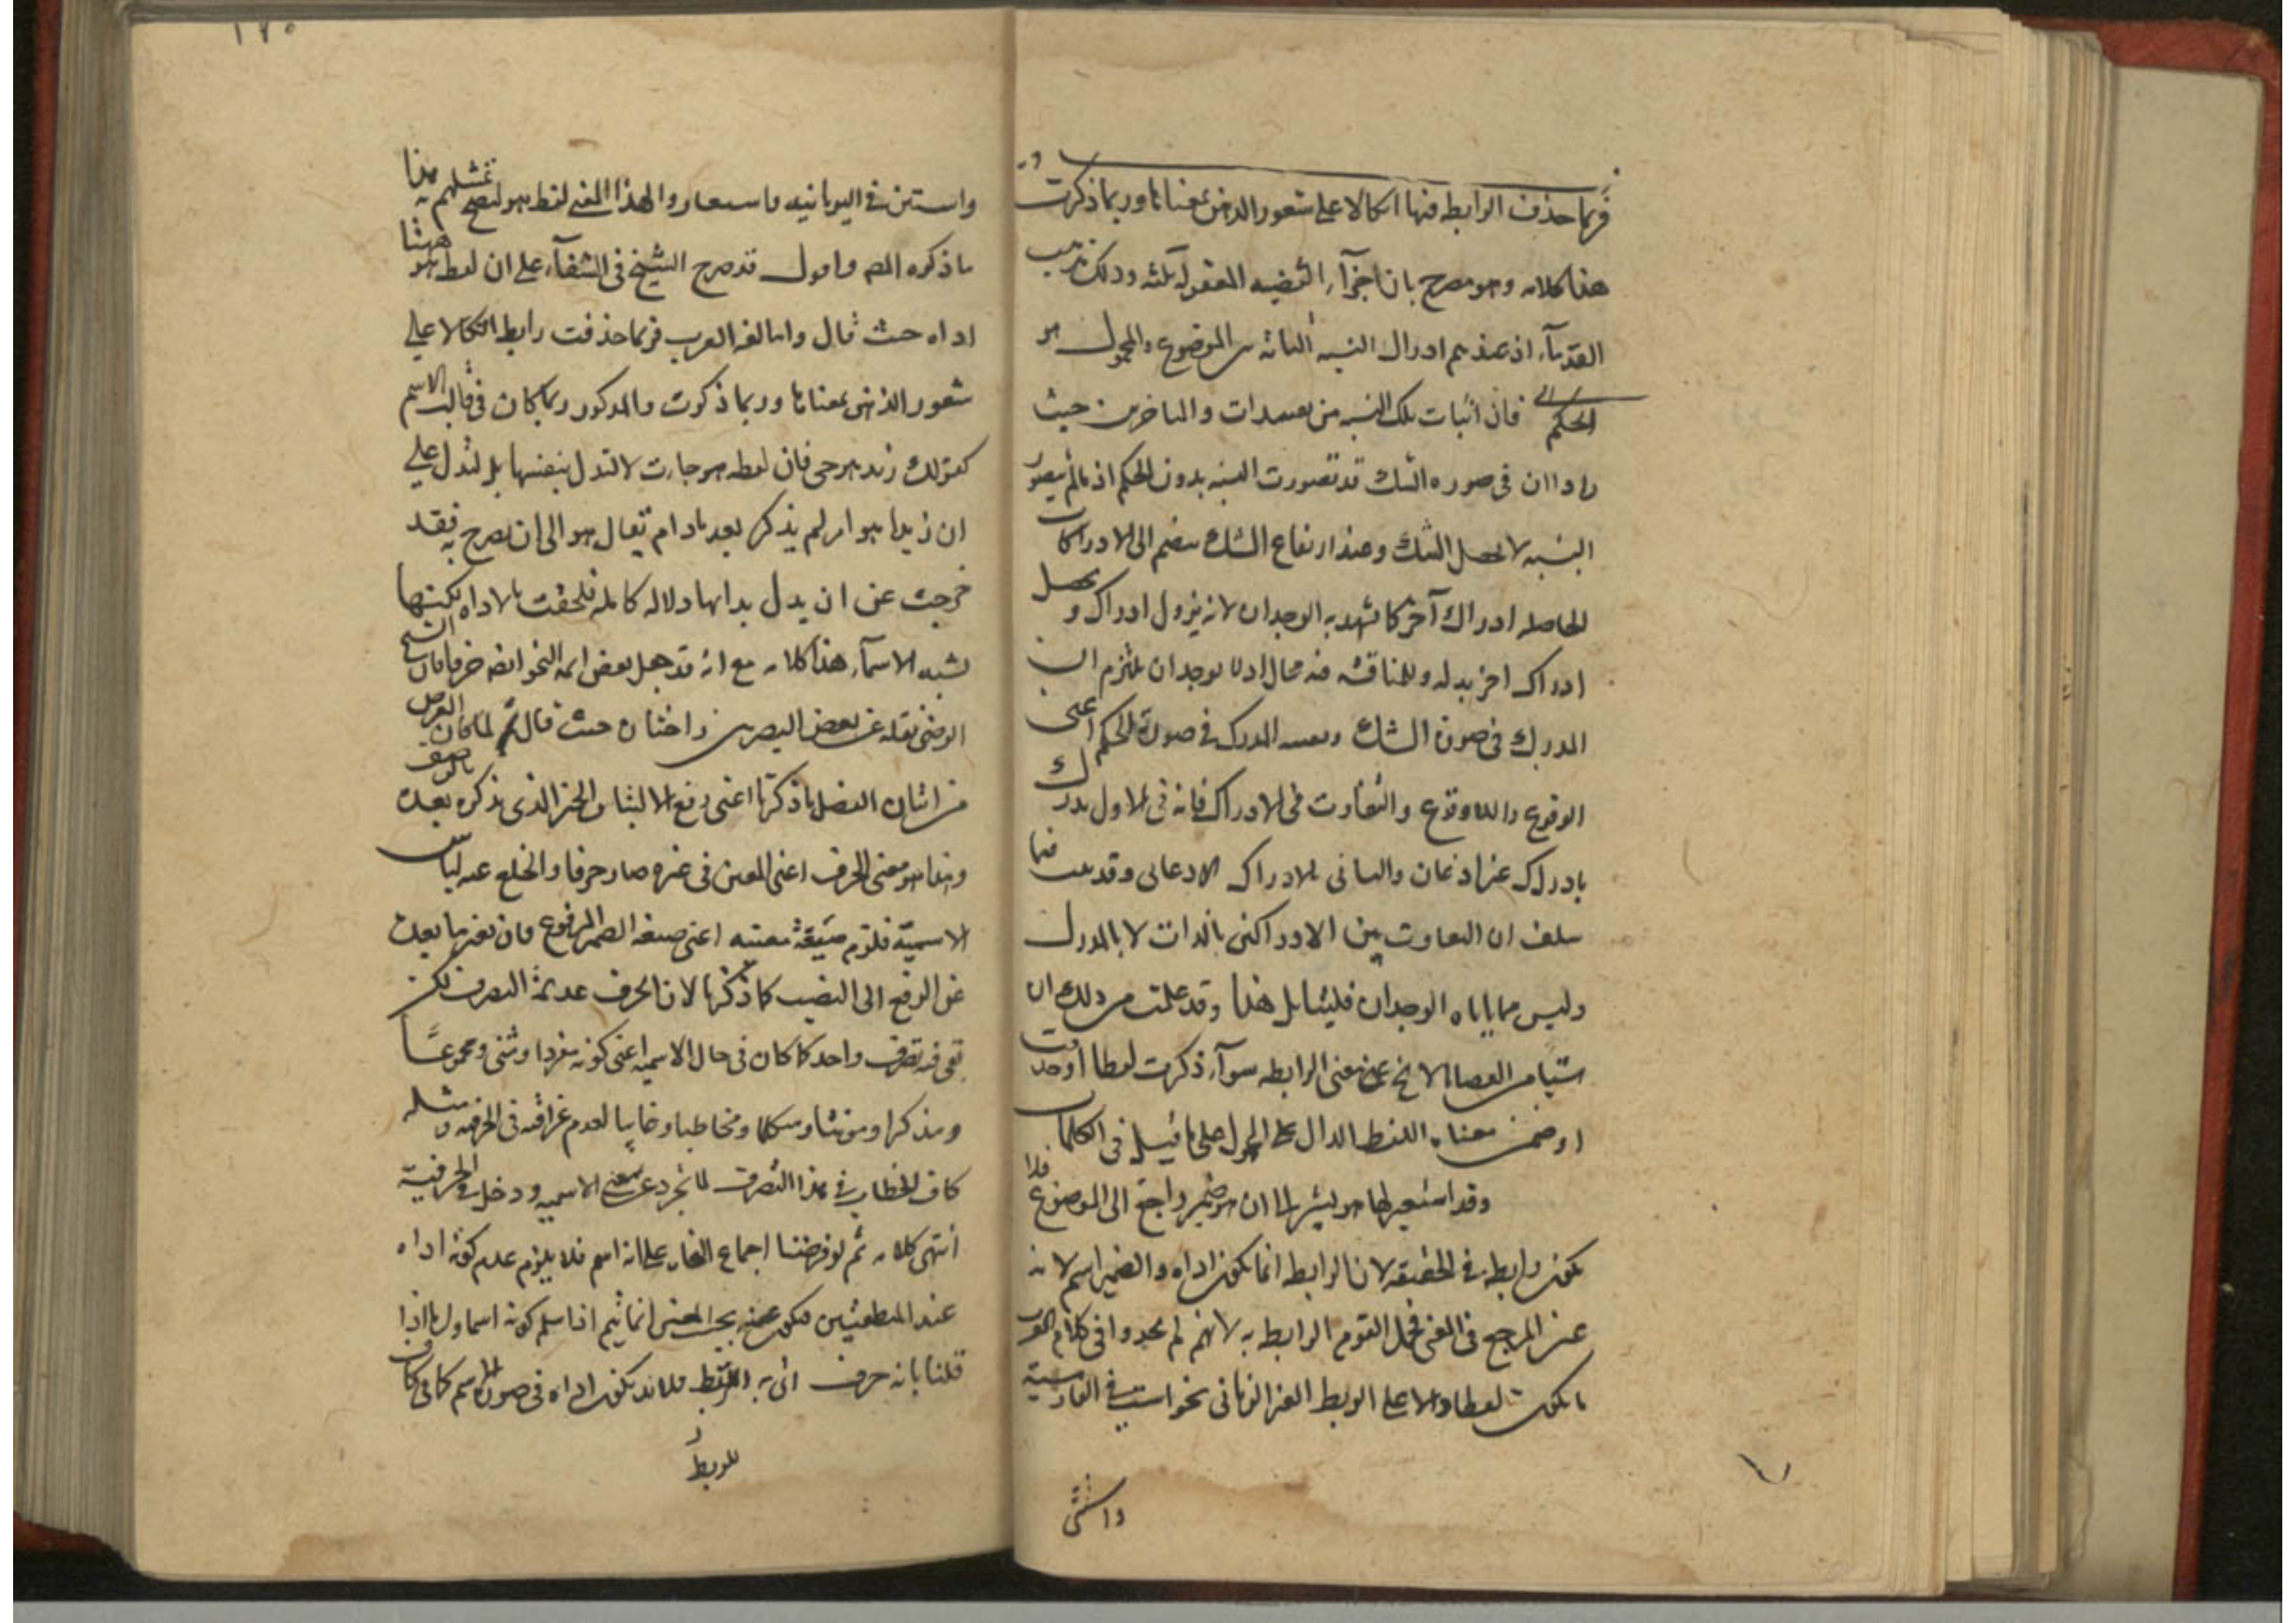 فربما حذف الرابطه فيها اتكالا على شعور الذهن بمعناها وربما ذكرت
هذا كلامه وهو مصرح بان اجزآء القضيه المعقوله ثلثه وذلك مذهب
القدمآء اذ عندهم ادراك النسبه الثابته بين الموضوع والمحمول هو
الحكم فان اثبات تلك النسبه من المتاخرين حيث
راوا ان فى صوره الشك قد تصورت النسبه بدون الحكم اذ ما لم يتصور
النسبه لا يحصل الشك وعند ارتفاع الشك ينضم الى الادراكات
الحاصله ادراك آخر كما يشهد به الوجدان لا انه يزول ادراك و يحصل
ادراك اخر بدله وللمناقشه فيه مجال اذ لا يوجد ان يلتزم ان
المدرك فى صورة الشك وبعينه المدرك فى صورة الحكم اعنى
الوقوع واللاوقوع والتفاوت فى الادراك فانه فى الاول يدرك
بادراك غير اذعان والثانى بالادراك الاذعانى وقد بينا فيما
سلف ان التفاوت بين الادراكين بالذات لا بالمدرك
وليس مما ياباه الوجدان فليتامل هذا وقد علمت من ذلك ان
شيئا من القضايا لا يخ عن معنى الرابطه سوآء ذكرت لفظا او حذفت
او ضمن معناه اللفظ الدال على المحمول على ما قيل فى الكلمات
وقد استعير لها هو يشير الى ان هو ضمير راجع الى الموضوع فلا
يكون رابطه فى الحقيقه لان الرابطه انما يكون اداه والضمير اسم لانه
عين المرجع فى المعنى فجعل القوم الرابطه به لانهم لم يجدوا فى كلام العرب
ما يكون لفظا دالا على الربط الغير الزمانى نحو است فى الفارسية
واستن
١٢٠
واستن فى اليونانيه فاستعاروا لهذا المعنى لفظ هو ليصح تمثيلهم به هذا
ما ذكره المص واقول قد صرح الشيخ فى الشفآء على ان لفظ هو ههنا
اداه حيث قال واما لغه العرب فربما حذفت رابطه اتكالا على
شعور الذهن بمعناها وربما ذكرت والمذكور ربما كان فى قالب الاسم
كقولك زيد هو حى فان لفظه هو جاءت لا لتدل بنفسها بل لتدل على
ان زيدا هو امر لم يذكر بعد مادام يقال هو الى ان يصرح به فقد
خرجت عن ان يدل بذاتها دلاله كامله فلحقت بالاداه لكنها
تشبه الاسمآء هذا كلامه مع انه قد جعل بعض ائمه النحو ايضا حرفا قال الشيخ
الرضى نقله عن بعض البصريين واختاره حيث قال ثم لما كان الغرض
من اتيان الفصل ما ذكرنا اعنى دفع التباس الخبر الذى يذكره بعده بالوصف
وهذا هو معنى الحرف اعنى المعنى فى غيره صار حرفا وانخلع عنه لباس
الاسميه فلزم صيغة معينه اعنى صيغه الضمير المرفوع وان تغير ما بعده
عن الرفع الى النصب كما ذكرنا لان الحروف عديمة التصرف لكن
بقى فيه تصرف واحد كما كان فى حال الاسميه اعنى كونه مفردا ومثنى ومجموعًا
ومذكرا ومونثا ومتكلما ومخاطبا وغايبا لعدم عراقته فى الحرفيه ومثله
كاف الخطاب فى هذا التصرف لما تجرد عن معنى الاسميه ودخل فى الحرفية
انتهى كلامه ثم لو فرضنا اجماع النحاه على انه اسم فلا يلزم عدم كونه اداه
عند المنطقيين انما يتم اذا سلم كونه اسما واما اذا
قلنا بانه حرف اتى به للربط فلا بد يكون اداه فى صورة الاسم كما فى كاف
للربط